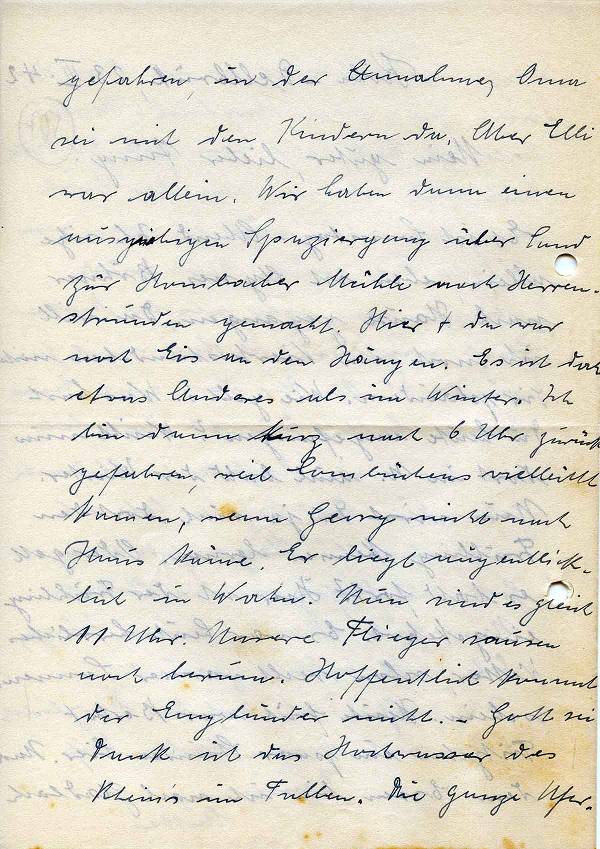 gefahren, in der Annahme, Oma
sei mit den Kindern da. Aber Elli
war allein. Wir haben dann einen
ausgiebigen Spaziergang über Land
zur Hombacher Mühle nach Herren-
strunden gemacht. Hier + da war
noch Eis an den Hängen. Es ist doch
etwas Anderes als im Winter. Ich
bin dann kurz nach 6 Uhr zurück
gefahren, weil vielleicht
kamen, wenn Georg nicht nach
Haus käme. Er liegt augenblick-
lich in Wahn. Nun sind es gleich
11 Uhr. Unsere Flieger sausen
noch herum. Hoffentlich kommt
der Engländer nicht. – Gott sei
Dank ist das Hochwasser des
Rheins im Fallen. Die ganze Ufer-